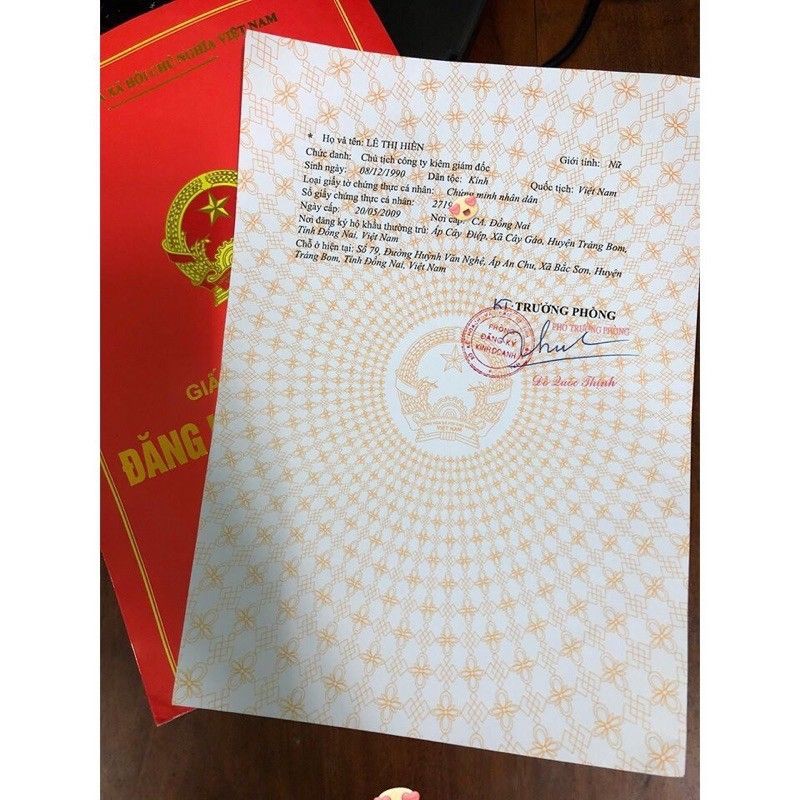 XÃ HỘI CHỦ NGHĨA VIỆT NAM
GIẤ
ĐĂNG
* Họ và tên: LÊ THỊ HIÊN Giới tính: Nữ
Chức danh: Chủ tịch công ty kiêm giám đốc
Sinh ngày: 08/12/1990 Dân tộc: Kinh Quốc tịch: Việt Nam
Loại giấy tờ chứng thực cá nhân: Chứng minh nhân dân
Số giấy chứng thực cá nhân: 2719
Ngày cấp: 20/05/2009 Nơi cấp: CA. Đồng Nai
Nơi đăng ký hộ khẩu thường trú: Ấp Cây Điệp, Xã Cây Gáo, Huyện Trảng Bom,
Tỉnh Đồng Nai, Việt Nam
Chỗ ở hiện tại: Số 79, Đường Huỳnh Văn Nghệ, Ấp An Chu, Xã Bắc Sơn, Huyện
Trảng Bom, Tỉnh Đồng Nai, Việt Nam
KT. TRƯỞNG PHÒNG
PHÓ TRƯỞNG PHÒNG
PHÒNG
ĐĂNG KÝ
KINH DOANH
Đỗ Quốc Thịnh
VIỆT NAM